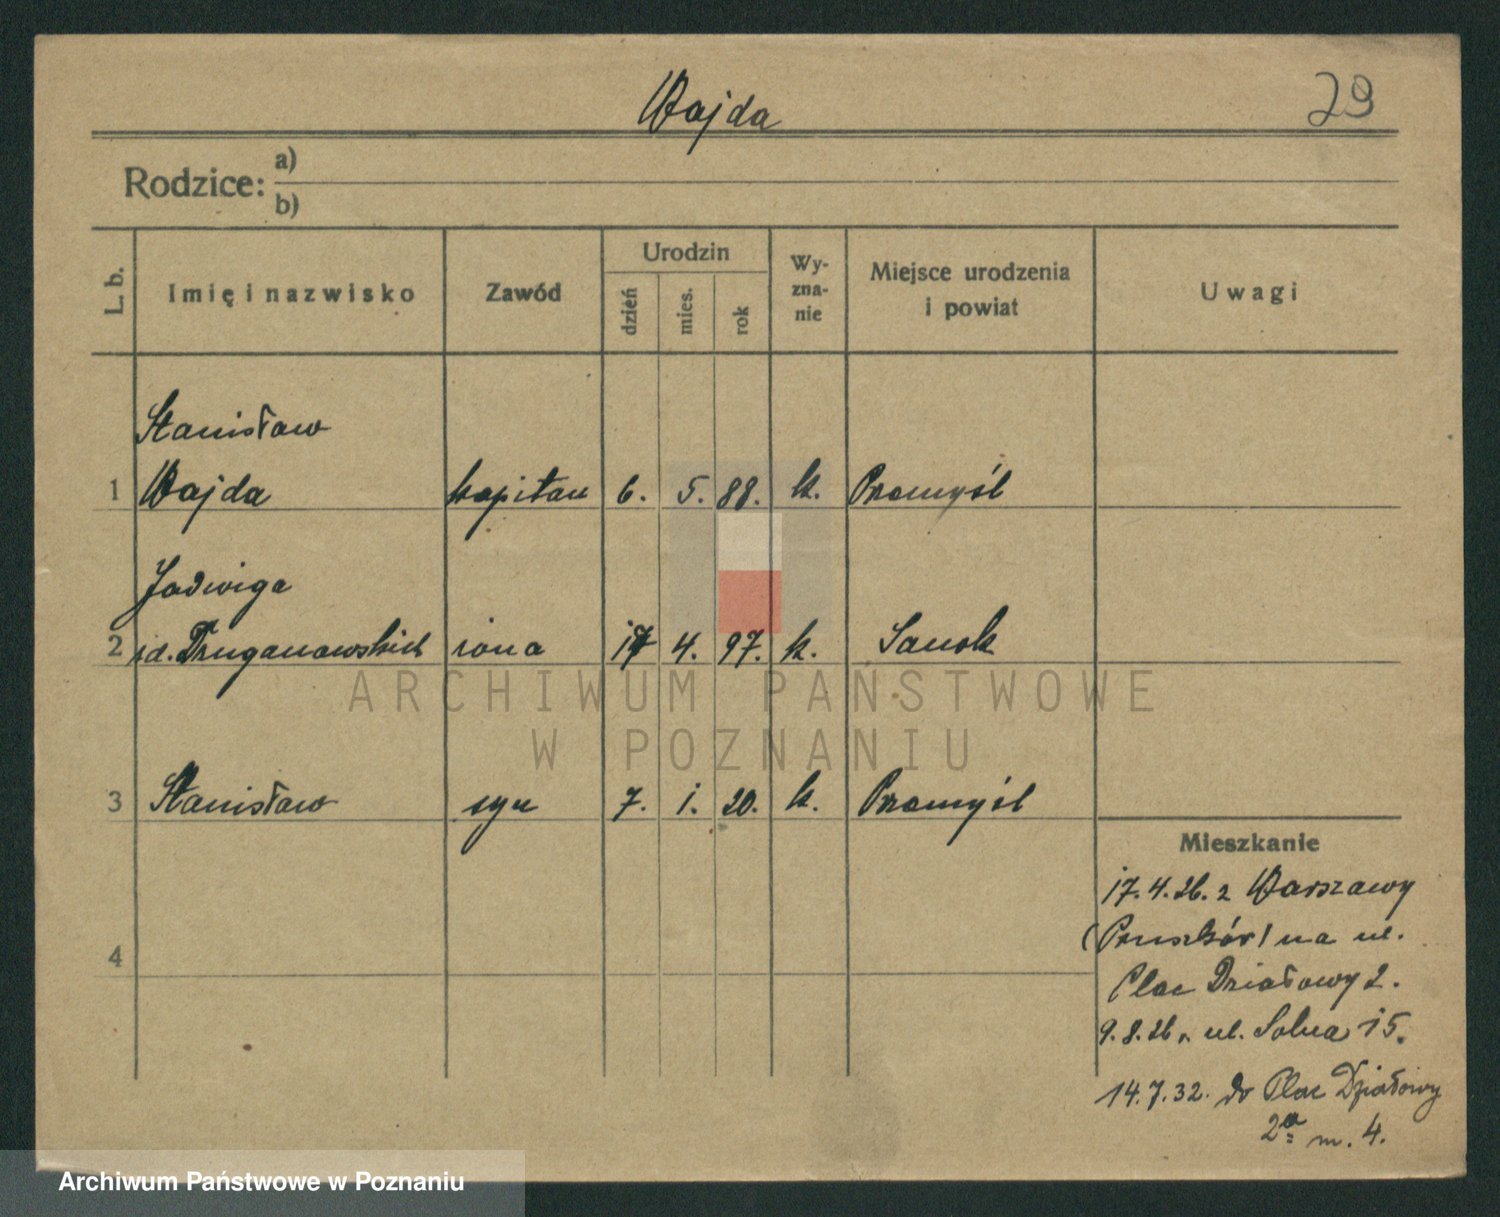 Wajda
29
Rodzice: a)
b)
L. b.
Imię i nazwisko
Zawód
Urodzin
dzień
mies.
rok
Wy-
zna-
nie
Miejsce urodzenia
i powiat
Uwagi
Stanisław
1 Wajda kapitan 6. 5. 88. k. Przemyśl
Jadwiga
2 żona 17 4. 97. k. Sanok
3 Stanisław syn 7. 1. 20. k. Przemyśl
4
Mieszkanie
17.4.26. z Warszawy
(Pruszków) na ul.
Plac Działowy 2.
9.8.26 r. ul. Solna 15.
14.7.32. do Plac Działowy
2a m. 4.
ARCHIWUM PAŃSTWOWE
W POZNANIU
Archiwum Państwowe w Poznaniu